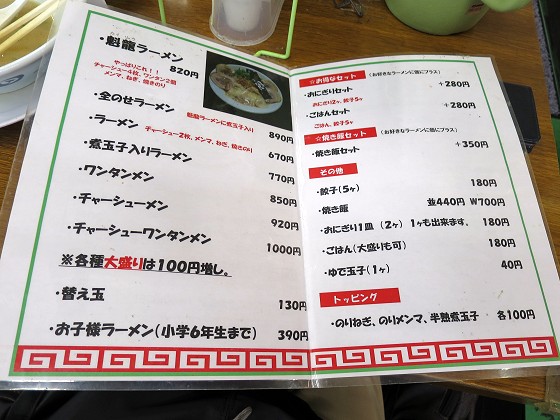 ・魁龍ラーメン 820円
やっぱりこれ！！
チャーシュー4枚、ワンタン2個
メンマ、ねぎ、焼きのり
・全のせラーメン 890円
魁龍ラーメンに煮玉子入り
・ラーメン 670円
チャーシュー2枚、メンマ、ねぎ、焼きのり
・煮玉子入りラーメン 770円
・ワンタンメン 850円
・チャーシューメン 920円
・チャーシューワンタンメン 1000円
※各種大盛りは100円増し。
・替え玉 130円
・お子様ラーメン（小学6年生まで） 390円
☆お得なセット （お好きなラーメンに更にプラス）
・おにぎりセット +280円
おにぎり2ヶ、餃子5ヶ
・ごはんセット +280円
ごはん、餃子5ヶ
☆焼き飯セット （お好きなラーメンに更にプラス）
・焼き飯セット +350円
その他
・餃子（5ヶ） 180円
・焼き飯 並440円 W700円
・おにぎり1皿 （2ヶ）1ヶも出来ます。 180円
・ごはん（大盛りも可） 180円
・ゆで玉子（1ヶ） 40円
トッピング
・のりねぎ、のりメンマ、半熟煮玉子 各100円